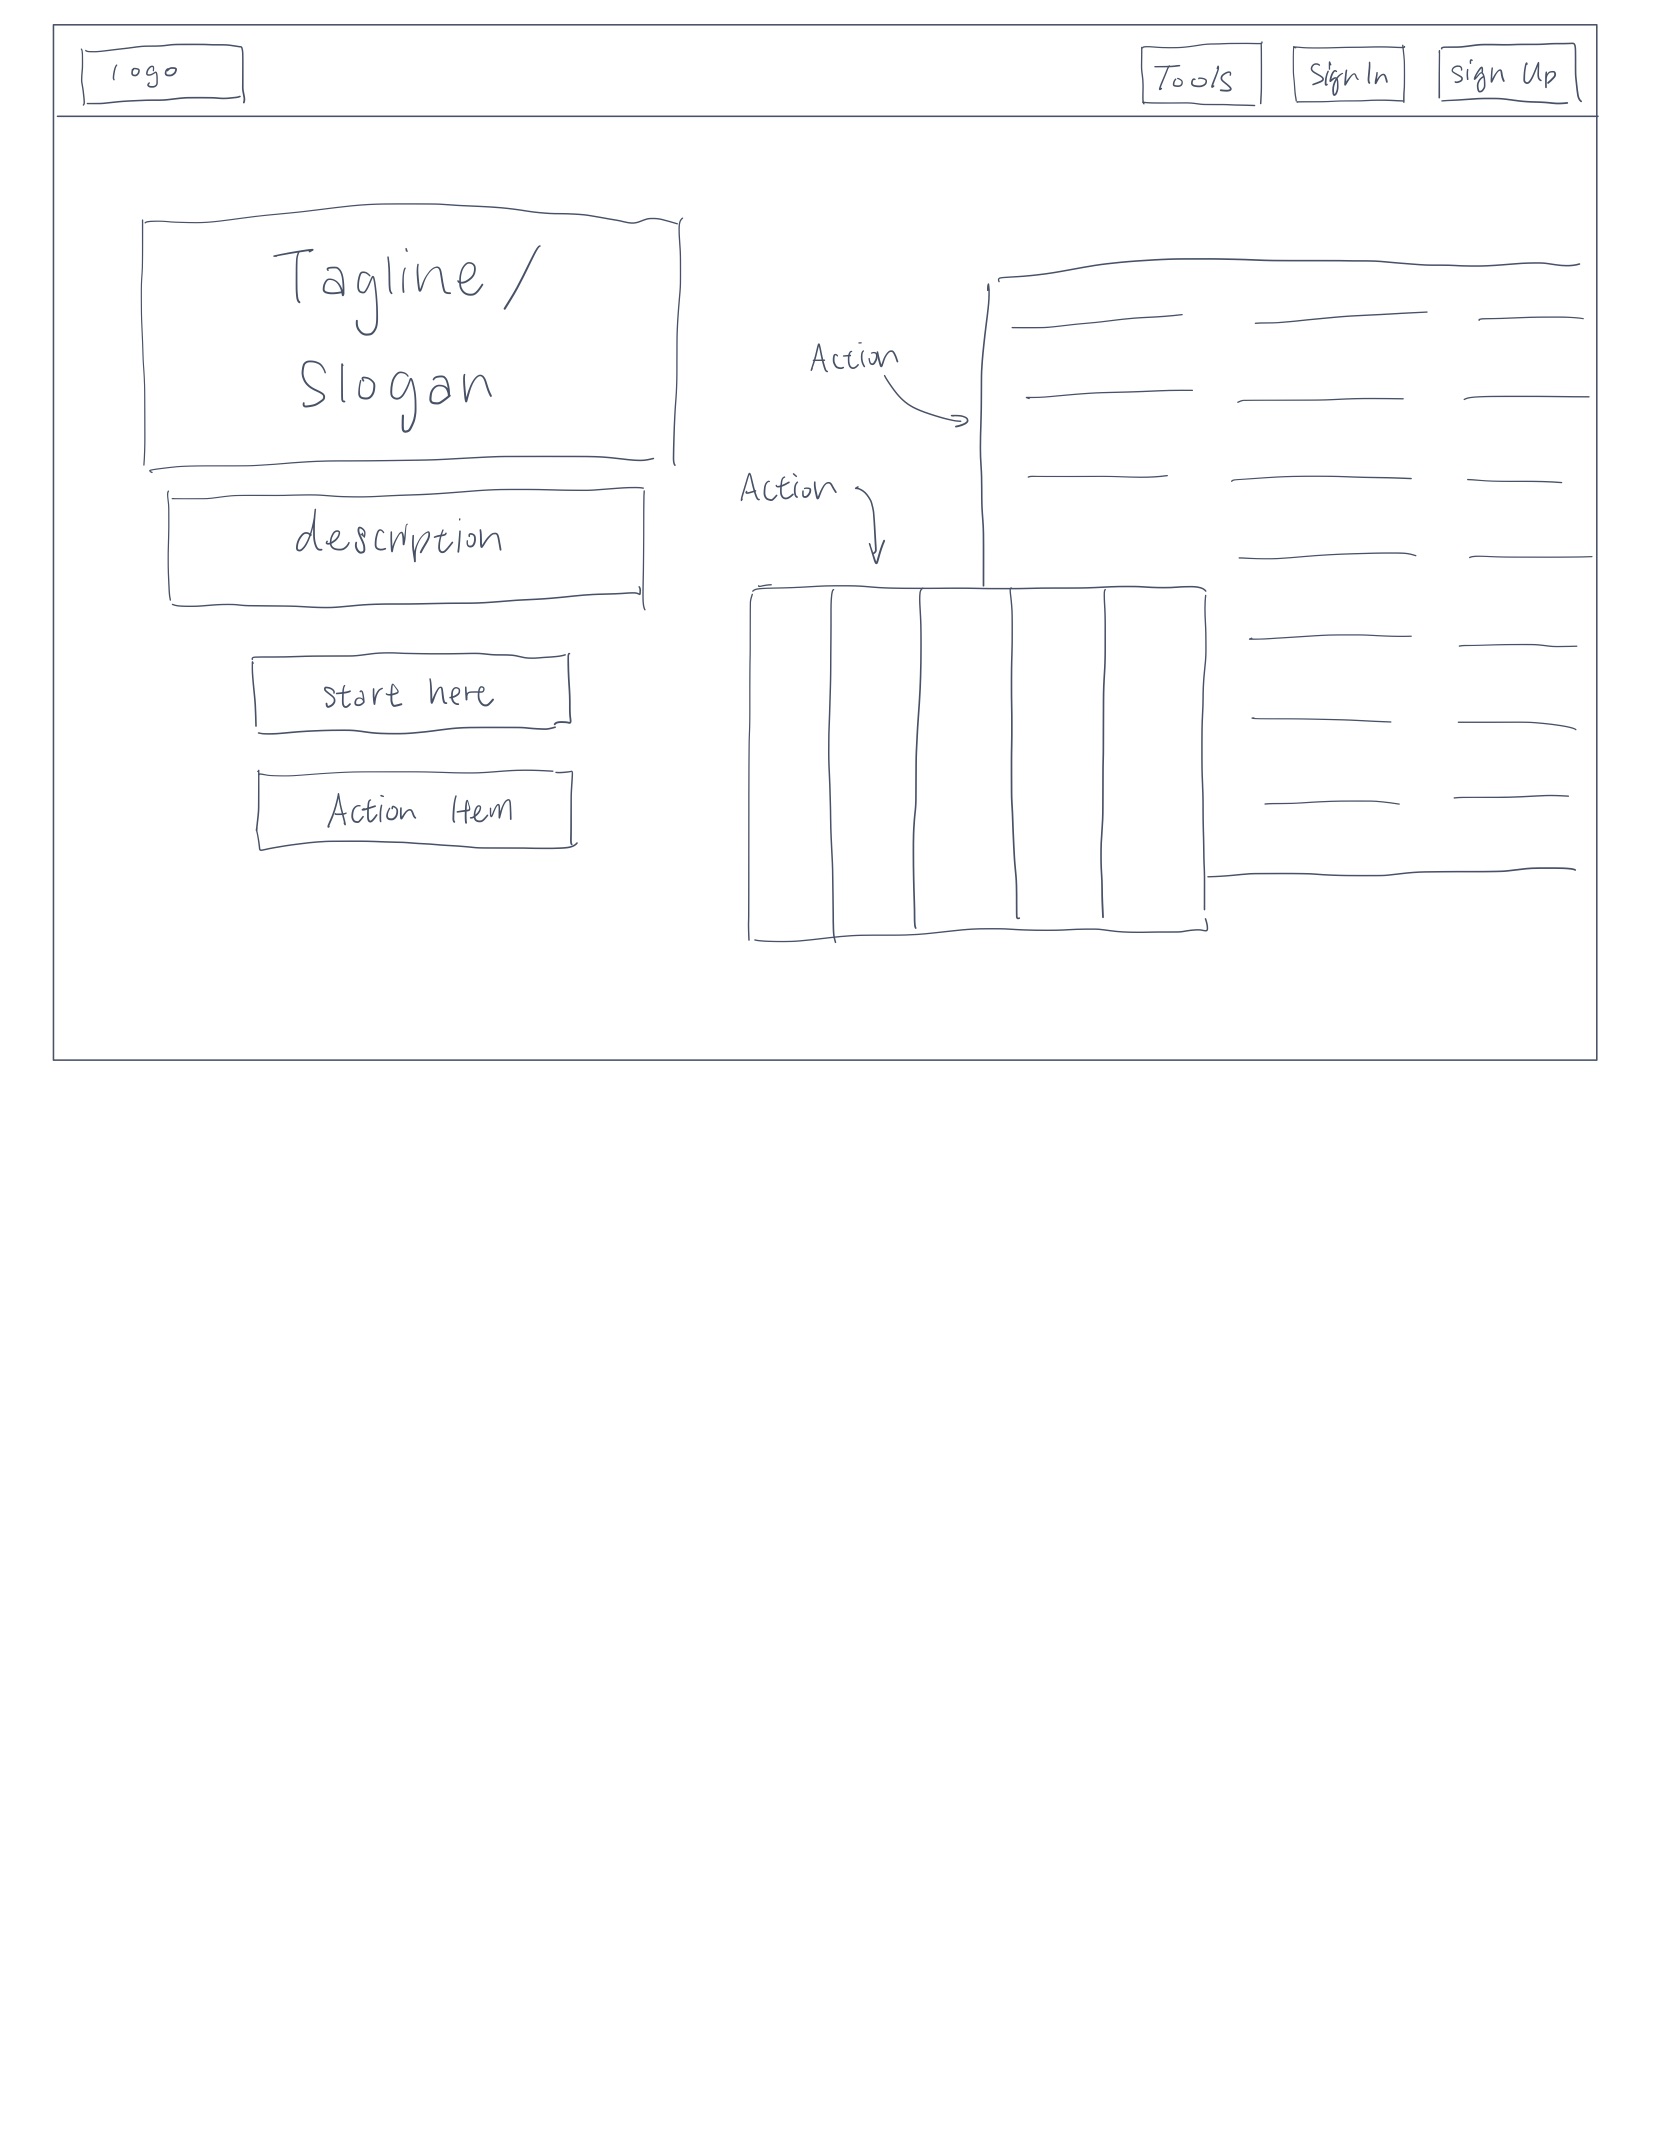 logo
Tools
Sign In
Sign Up
Tagline /
Slogan
description
start here
Action Item
Action
Action